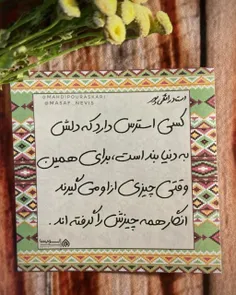 @MAHDIPOURASKARI
@MASAY_NEVIS
کسی استرس دارد که دلش
به دنیا بند است، برای همین
وقتی چیزی از او می گیرند
انگار همه چیزش را گرفته اند.